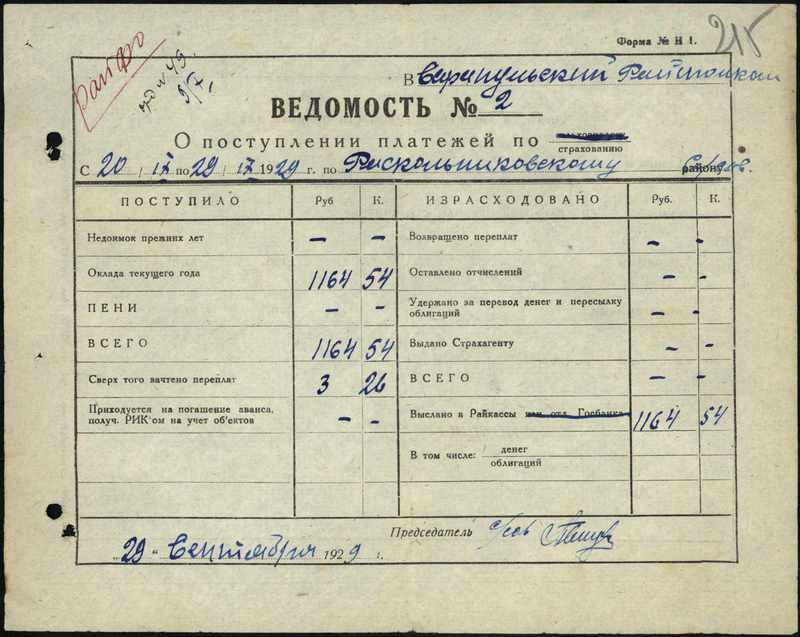 Форма № Н 1.
215
райфо
49
В Сарапульский Райисполком
ВЕДОМОСТЬ № 2
О поступлении платежей по
страхованию
С 20 / IX по 29 / IX 1929 г. по Раскольниковскому району
ПОСТУПИЛО Руб К. ИЗРАСХОДОВАНО Руб. К.
Недоимок прежних лет — — Возвращено переплат — -
Оклада текущего года 1164 54 Оставлено отчислений — -
ПЕНИ — — Удержано за перевод денег и пересылку облигаций — -
ВСЕГО 1164 54 Выдано Страхагенту — -
Сверх того зачтено переплат 3 26 ВСЕГО — —
Приходуется на погашение аванса, получ. РИК'ом на учет об'ектов — - Выслано в Райкассы или отд. Госбанка 1164 54
В том числе: денег
облигаций
Председатель
„29" Сентября 1929 г.